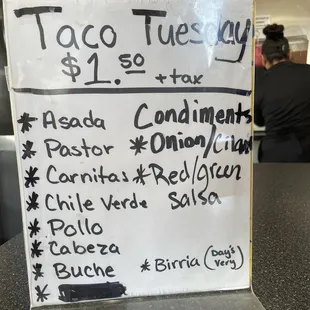 Taco Tuesday
$1.50 +tax
* Asada
* Pastor
* Carnitas
* Chile Verde
* Pollo
* Cabeza
* Buche
*
Condiments
* Onion/Cilant
* Red/green
Salsa
* Birria (Day's Very)